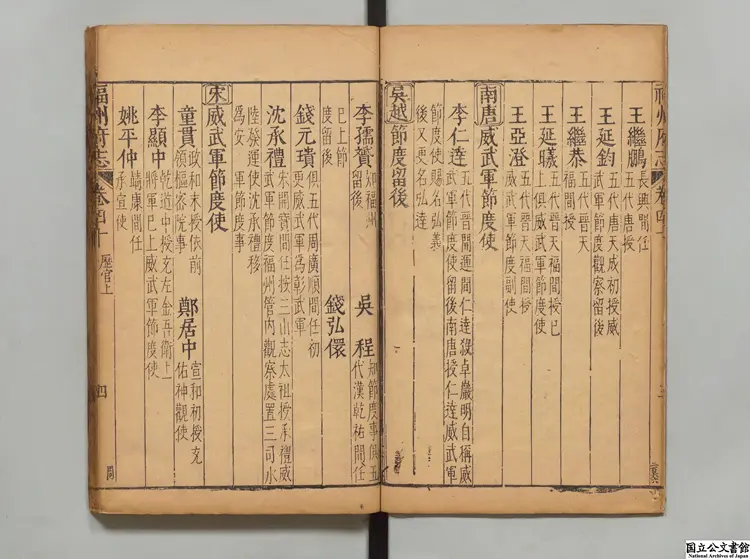 王繼鵬 長興間任
五代唐授
王延鈞 五代唐天成初授威
武軍節度觀察留後
王繼恭 五代晉天
福間授
王延曦 五代晉天福間授已
上俱威武軍節度使
王亞澄 五代晉天福間授
威武軍節度副使
南唐威武軍節度使
李仁達 五代晉開運間仁達殺卓巖明自稱威
武軍節度使留後南唐授仁達威武軍
節度使賜名弘義
後又更名弘達
吳越節度留後
李孺贇 知福州
留後
吳程 知節度事俱五
代漢乾祐間任
已上節
度留後
錢元㺷 俱五代周廣順間任初
更威武軍為彰武軍
錢弘儇
沈承禮 宋開寶間任按三山志太祖授承禮威
武軍節度福州管內觀察處置三司水
陸發運使沈承禮移
為安
軍節度事
宋威武軍節度使
童貫 政和末授依前
領樞密院事
鄭居中 宣和初授充
佑神觀使
李顯中 乾道中授充左金吾衛上
將軍已上威武軍節度使
姚平仲 靖康間任
承宣使
福州府志
卷四十
歷官上
四
国立公文書館
National Archives of Japan